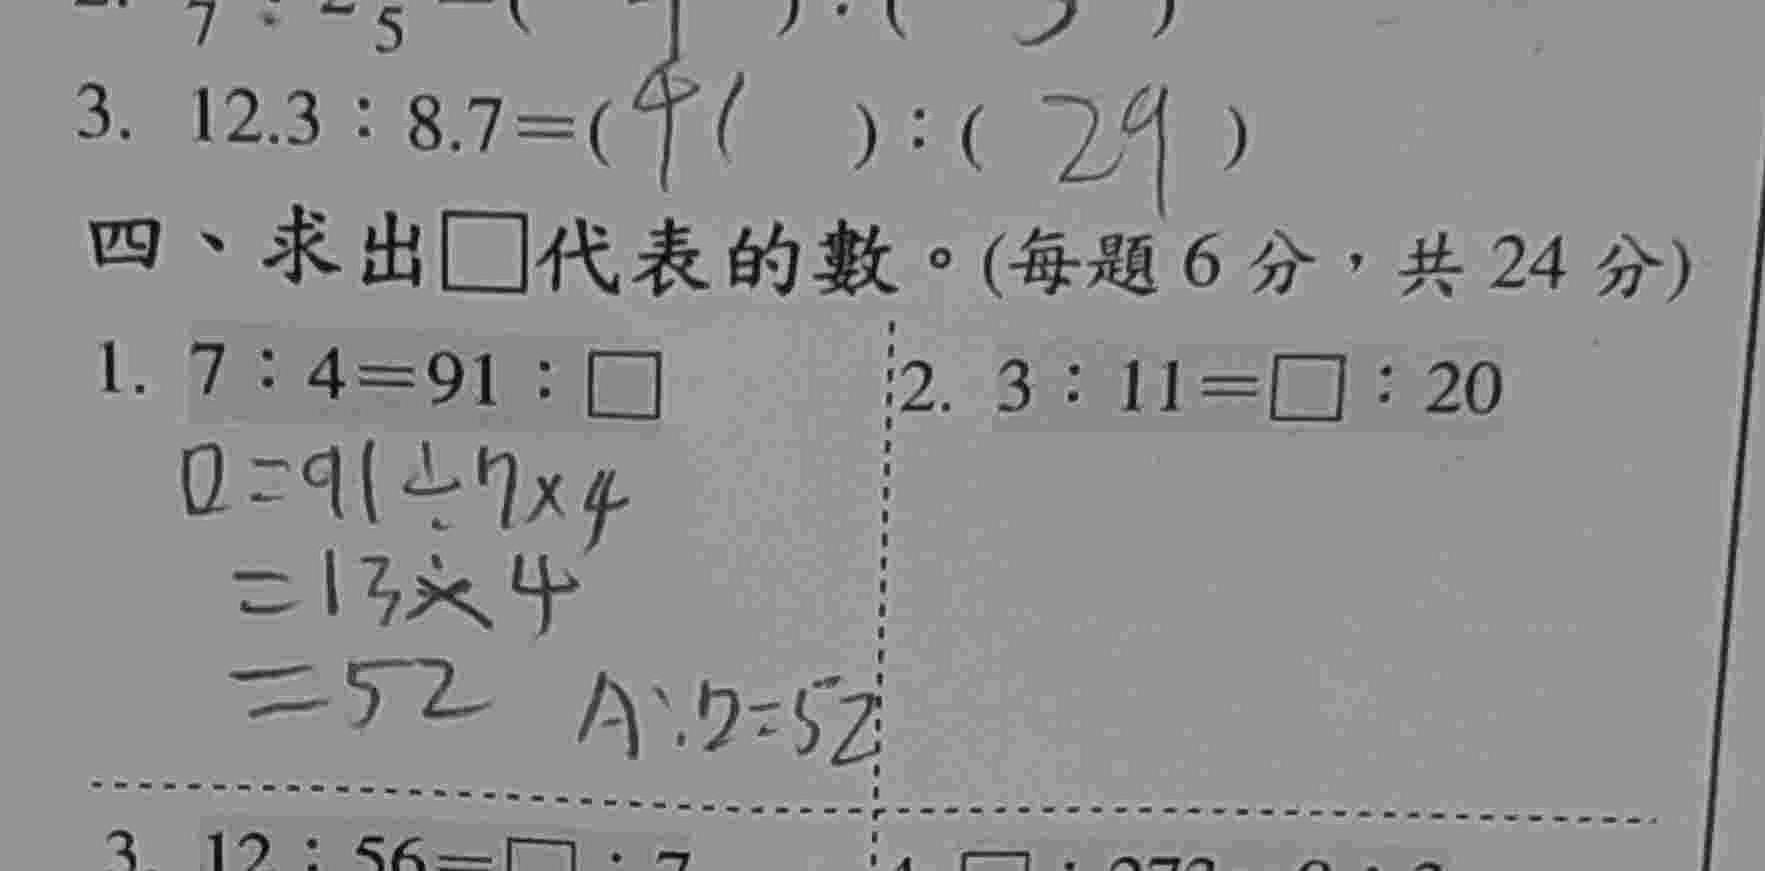 3. 12.3：8.7＝(41)：(29)
四、求出□代表的數。(每題 6 分，共 24 分)
1. 7：4＝91：□
□=91÷7×4
=13×4
=52 A:□=52
2. 3：11＝□：20
3. 12：56＝□：7